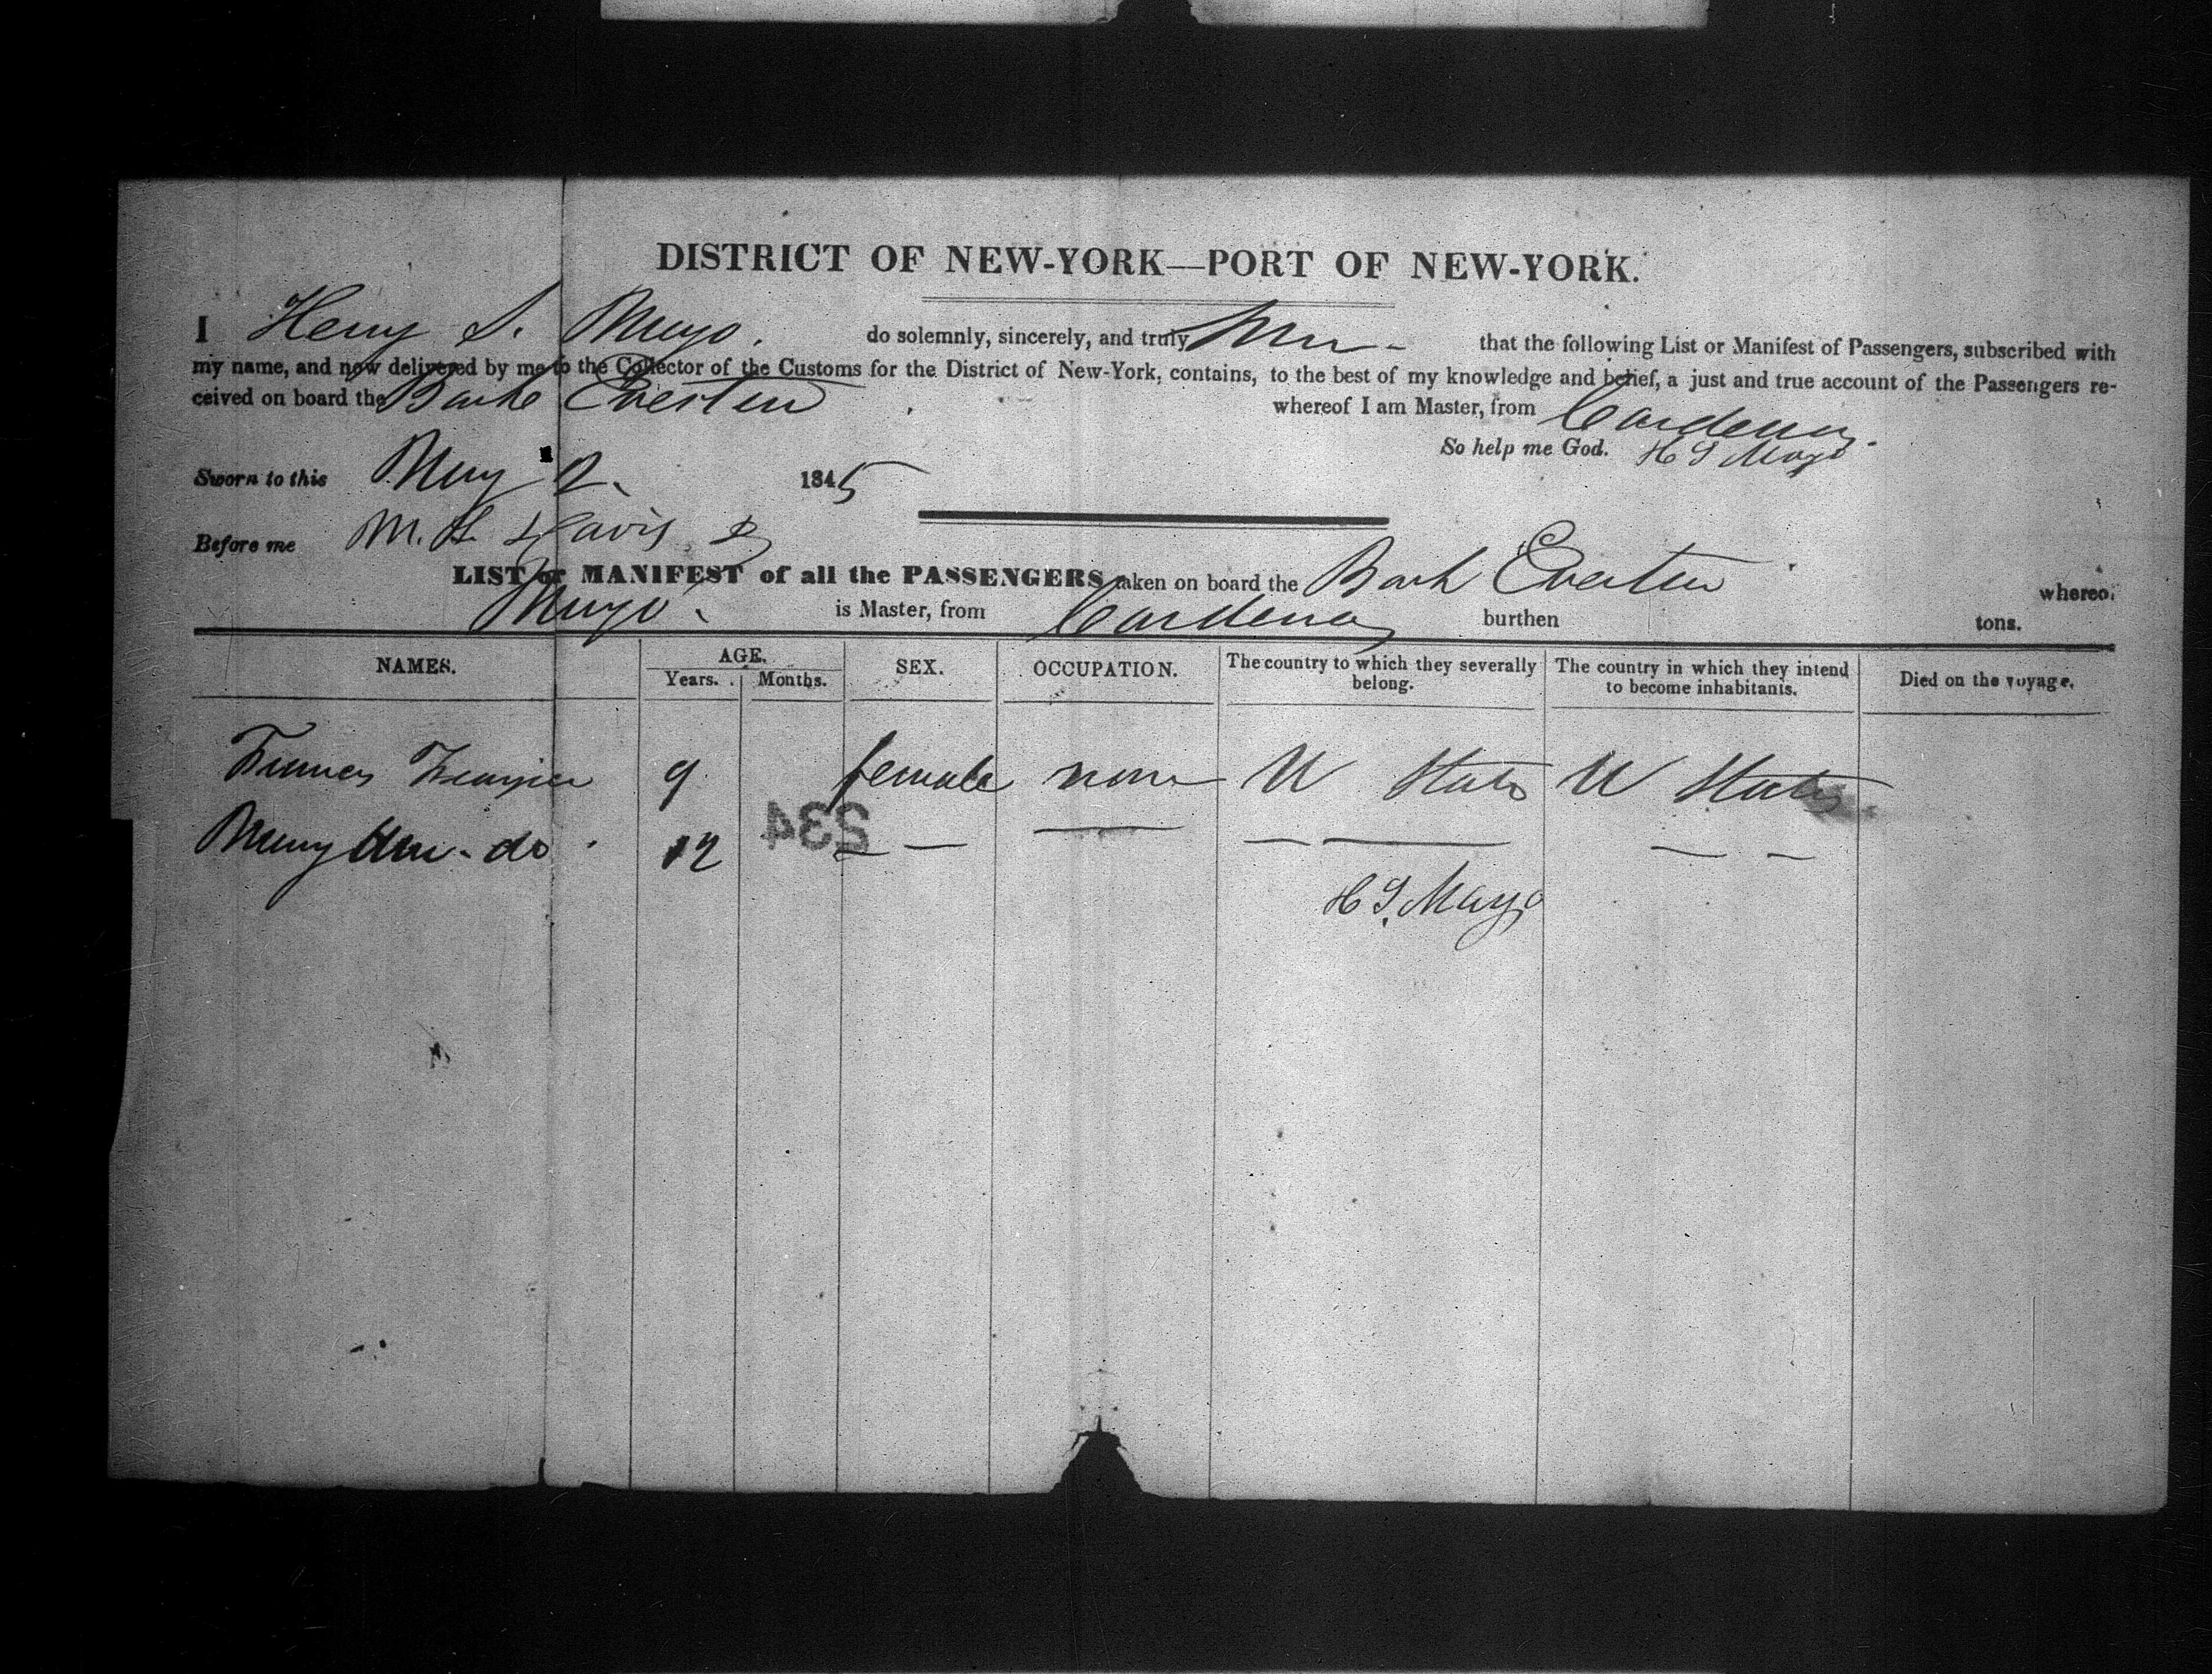 DISTRICT OF NEW-YORK—PORT OF NEW-YORK.
I Henry S. Mayo. do solemnly, sincerely, and truly that the following List or Manifest of Passengers, subscribed with
my name, and now delivered by me to the Collector of the Customs for the District of New-York, contains, to the best of my knowledge and belief, a just and true account of the Passengers re-
ceived on board the Bark whereof I am Master, from Cardenas.
So help me God. H S Mayo
Sworn to this May 2. 1845
Before me M. L. Davis
LIST or MANIFEST of all the PASSENGERS taken on board the Bark whereof
Mayo. is Master, from Cardenas burthen tons.
NAMES. AGE. SEX. OCCUPATION. The country to which they severally belong. The country in which they intend to become inhabitants. Died on the voyage.
Years. Months.
Frances 9 female none U States U States
Mary Ann do 12 — — — — — — —
234
H S. Mayo